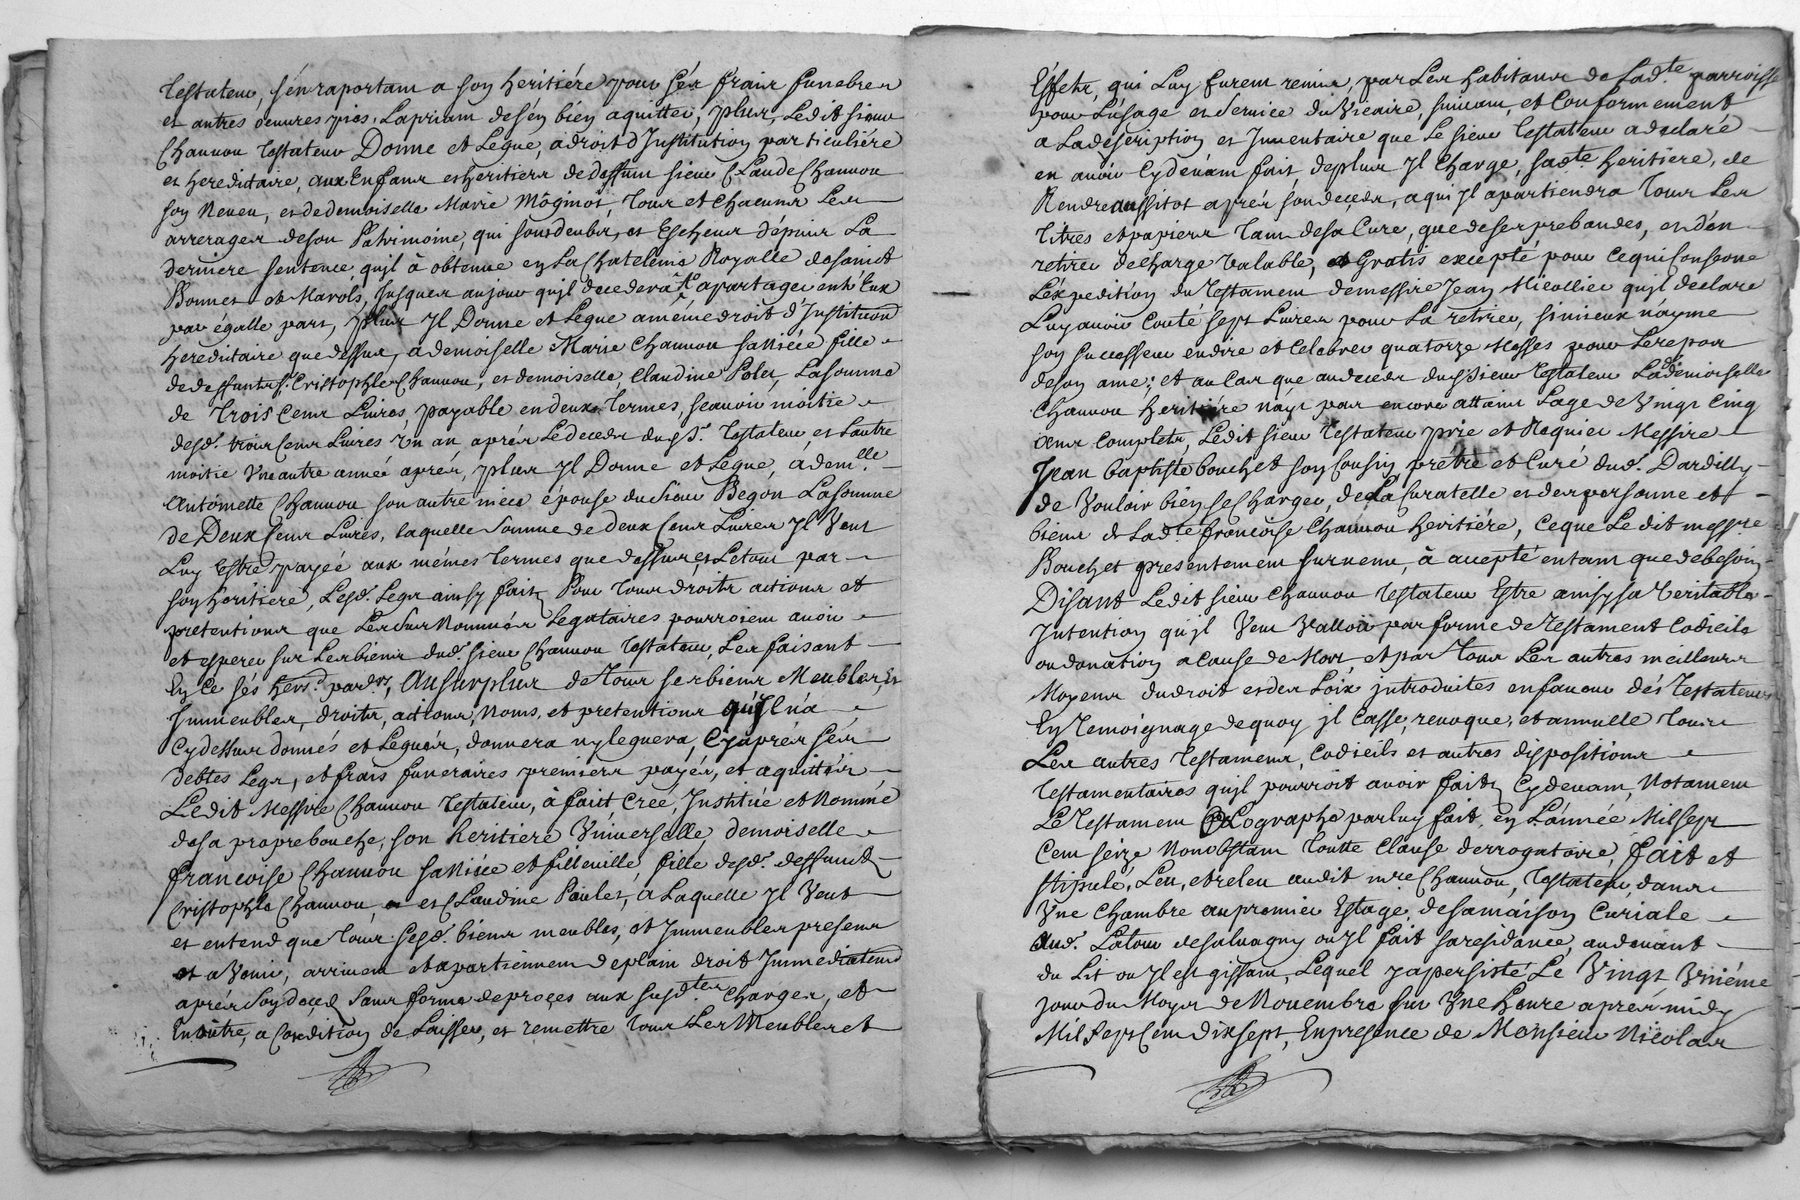 Testateur, s'en raportam a son heritiére pour ses frais funebres
et autres oeuvres pies, Lapriam desén bien aquitter, plus, Ledit sieur
Chanuou Testateur Donne et Legue, adroit d'Institution particuliére
et hereditaire, aux Enfans et heritiers dedeffunt sieur Claude Chanuou
son Neveu, et dedemoiselle Marie Moginot, Tous et Chacuns Les
arrerages deson Patrimoine, qui sont deubs, et Escheus dépuis La
derniere sentence quil à obtenue en La Chatelenie Royalle de sainct
Bonnet et Marols, Jusques aujour quil decedera apartager entr'Eux
par égalle part, plus Jl Donne et Legue améme droit d'Institution
hereditaire que dessus, àdemoiselle Marie Chanuou saNiéce fille
de deffunt sr. Cristophle Chanuou, et demoiselle Claudine Polet, Lasomme
de Trois Cens Livres, payable en deux Termes, scauoir moitie
desd. trois Cens Livres Un an, aprés Le deceds dudt. sr. Testateur, et Lautre
moitie Vne autre année aprés, plus Jl Donne et Legue, à demlle.
Antoinette Chanuou son autre niece épouse du Sieur Begon LaSomme
de Deux Cens Livres, laquelle Somme de deux Cens Livres Jl Veut
Luy Estre payée aux mémes Termes que dessus, et Letout par
son heritiere, Lesd. Legs ainsy faits Pour Tous droits actions et
pretentions que Les sus Nommés Legataires pourroient auoir
et esperer sur Les biens dud. sieur Chanuou Testateur, Les faisant
En Ce ses hers. pars. Ausurplus de Tous ses biens Meubles, Et
Immeubles, droits, actions, Noms, et pretentions quíJl n'a
Cydessus donnés et Legués, donnera nyleguera, Cyaprés ses
debtes Legs, et frais funeraires premiers payés, et aquittés
Ledit Messire Chanuou Testateur, à faict Crée, Institué et Nommé
desa propre bouche, son heritiere Vniverselle, demoiselle
francoise Chanuou saNiéce et filleulle, fille desd. deffunct
Cristophle Chanuou, et Claudine Poulet, a Laquelle Jl Veut
et entend que Tous sesd. biens meubles, et Immeubles presens
et a Venir, arrivent et apartiennent deplain droit Immediatement
aprés Son deced Sans forme deproces aux susdtes. Charges, et
En outre, a Condition de Laisser, et remettre Tous Les Meubles et
Effets, qui Luy furent remis, par Les habitans de Ladte. parroisse
pour L'usage et Service du Vicaire, suiuant, et Conformement
a La déscription et Inuentaire que Le sieur Testateur adeclaré
en auoir Cydeuant fait, deplus Jl Charge, sadte. heritiere, de
Rendre aussitot aprés son deceds, a qui Jl apartiendra Tous Les
Titres et papiers Tant desa Cure, que deses prebandes, et d'en
retirer decharge Valable, Gratis excepté pour ce qui Conserne
L'éxpedition du Testament demessire Jean Micollier quil declare
Luy auoir Couté sept Livres pour La retirer, simieux n'ayme
son successeur en dire et Celebrer quatorze Messes pour Lerepos
deson ame; et au Cas que au deceds dudt Sieur Testateur Lad demoiselle
Chanuou heritiére n'ayt pas encore attaint Lage de Vingt Cinq
ans complets, Ledit sieur Testateur prie et Requier Messire
Jean baptiste bouchet son Cousin, prétre et Curé dud. Dardilly
de Vouloir bien se Charger, de La Curatelle et des personne et
biens de Ladte francoise Chanuou heritiére, Ceque Ledit messre
Bouchet presentement suruenu, à accepté entant que debesoin
Disant Ledit sieur Chanuou Testateur Estre ainsy sa Veritable
Intention quil Veut Valloir par forme de Testament Codicile
ou donation a cause de Mort, et par Tous Les autres meilleurs
Moyens du droit et des Loix introduites en faueur dés Testateurs
En Temoignage de quoy jl Casse, reuoque, et annulle Tous
Les autres Testamens, Codicils et autres dispositions
Testamentaires quil pourroit avoir faits Cydeuant, Notament
Le Testament Olographe par luy fait, en L'année Mil Sept
Cent Séize Nonobstant Toutte Clause derrogatoire, fait et
stipulé, Leu, et releu audit mre Chanuou, Testateur, dans
Vne Chambre au premier Estage, desamaison Curiale
aud. Latour desaluagny ou Jl fait saresidance, au deuant
du Lit ou Jl est gissant, Lequel y apersisté Le Vingt Vniéme
jour du Moys de Nouembre sur Vne heure aprés midy
Mil Sept Cent dix sept, En presence de Monsieur Nicolas